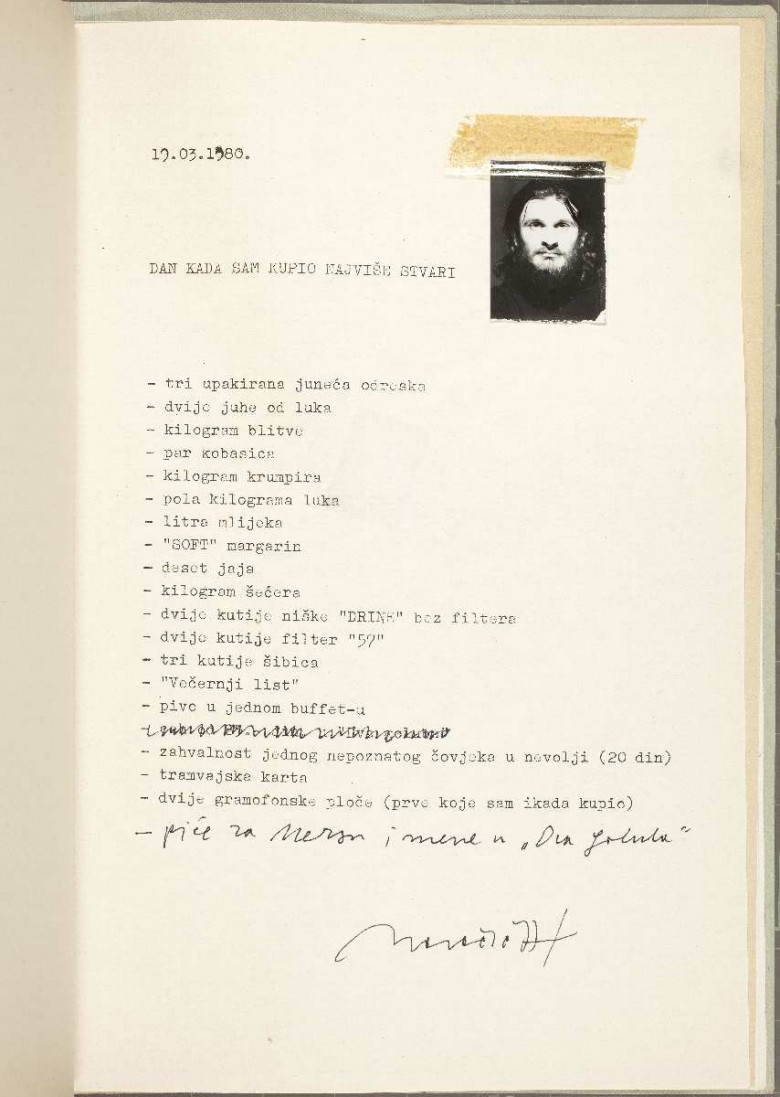 19.03.1980.
DAN KADA SAM KUPIO NAJVIŠE STVARI
- tri upakirana juneća odreska
- dvije juhe od luka
- kilogram blitve
- par kobasica
- kilogram krumpira
- pola kilograma luka
- litra mlijeka
- "SOFT" margarin
- deset jaja
- kilogram šećera
- dvije kutije niške "DRINE" bez filtera
- dvije kutije filter "57"
- tri kutije šibica
- "Večernji list"
- pivo u jednom buffet-u
- zahvalnost jednog nepoznatog čovjeka u nevolji (20 din)
- tramvajska karta
- dvije gramofonske ploče (prve koje sam ikada kupio)
- piće za i mene u „Dva goluba"